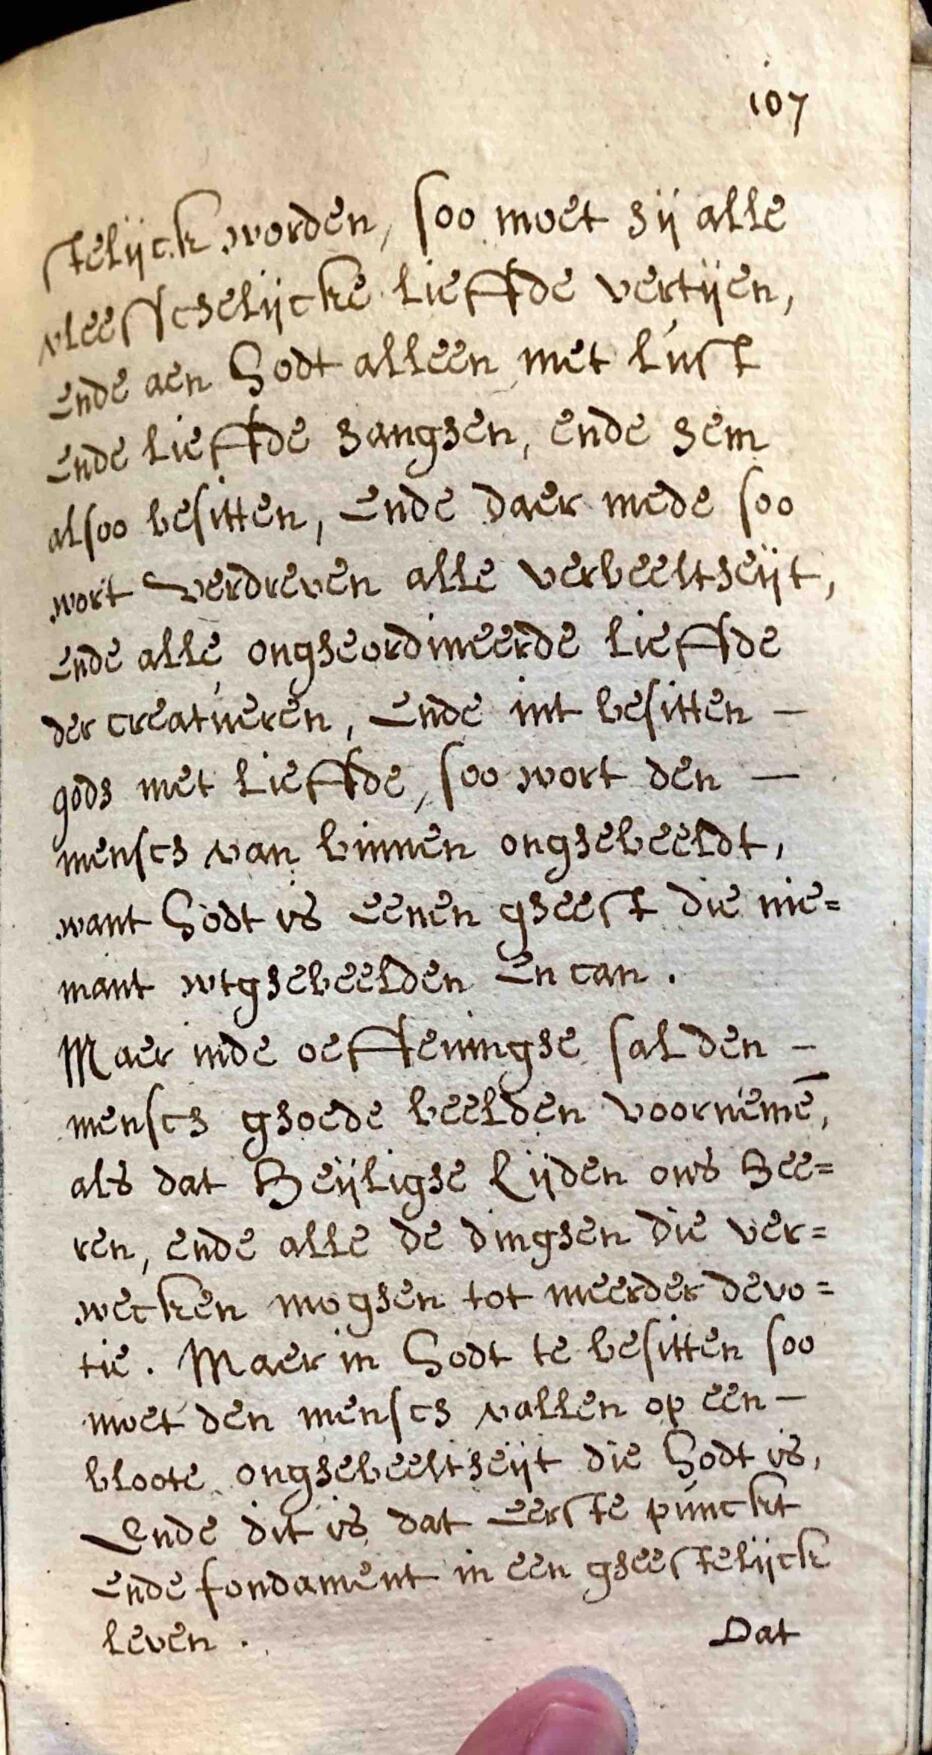 107
stelijck worden, soo moet hij alle
vleesschelijcke lieffde vertijen,
ende aen Godt alleen met lust
ende lieffde hanghen, ende hem
alsoo besitten, ende daer mede soo
wort verdreven alle verbeeltheijt,
ende alle ongheordineerde lieffde
der creatueren, ende int besitten —
gods met lieffde, soo wort den —
mensch van binnen onghebeeldt,
want Godt is eenen gheest die nie=
mant wtghebeelden en can.
Maer inde oeffeninghe sal den —
mensch ghoede beelden voornemē,
als dat Heijlighe Lijden ons Hee=
ren, ende alle de dinghen die ver=
wecken moghen tot meerder devo=
tie. Maer in Godt te besitten soo
moet den mensch vallen op een —
bloote onghebeeltheijt die Godt is,
Ende dit is dat eerste punckt
ende fondament in een gheestelijck
leven.
Dat